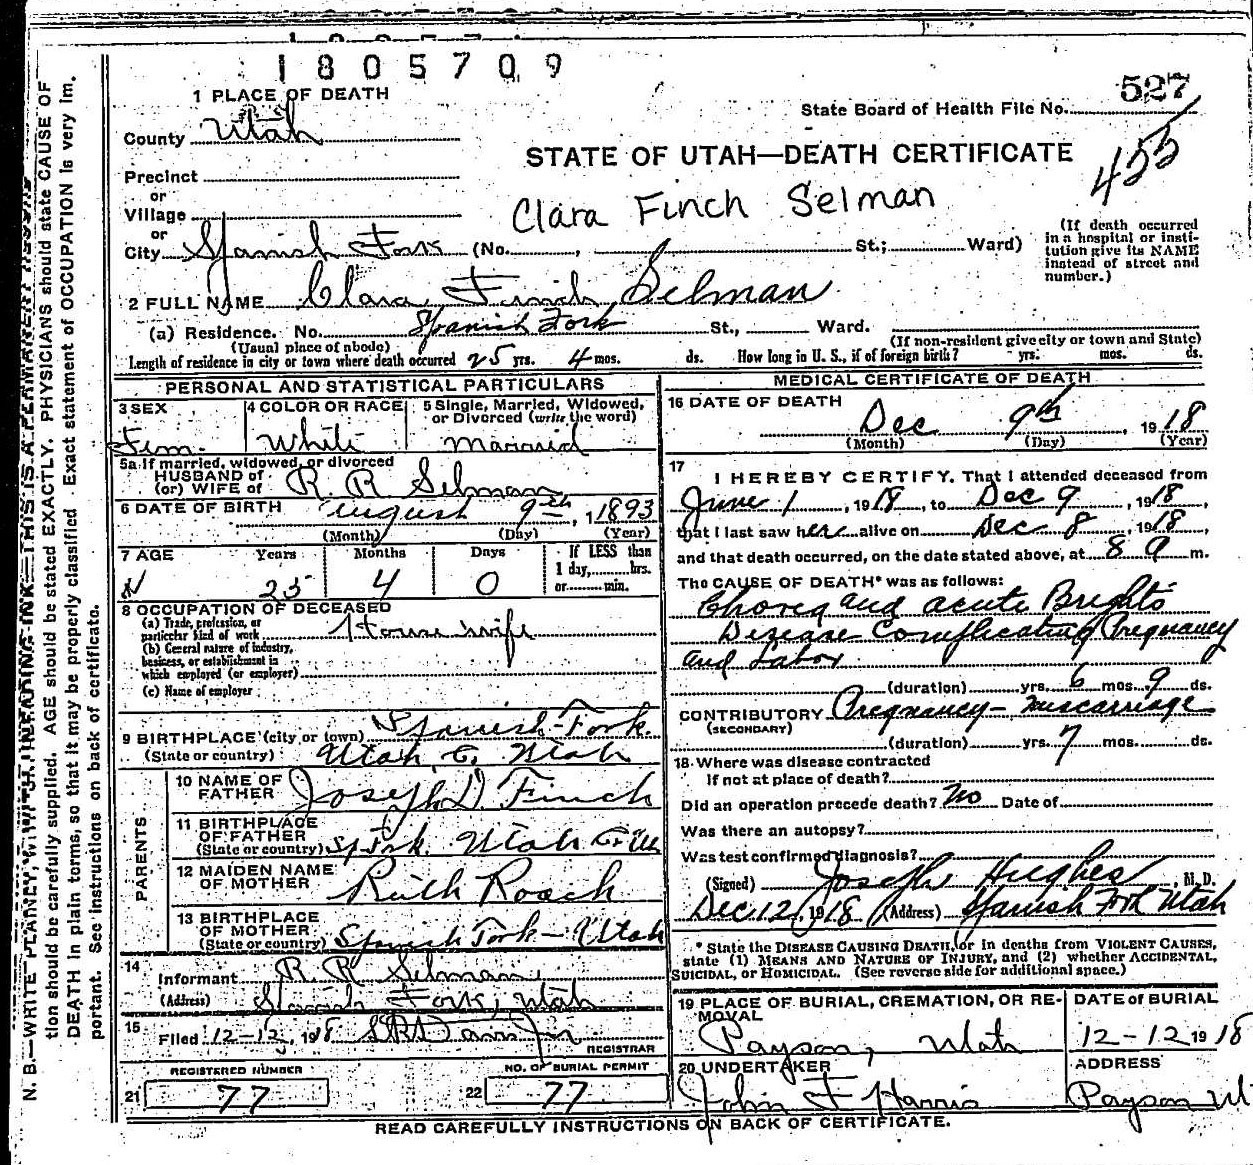 1805709
527
1 PLACE OF DEATH
State Board of Health File No.
County Utah
455
STATE OF UTAH—DEATH CERTIFICATE
Precinct
or
Village
Clara Finch Selman
or
City Spanish Fork (No. , St.; Ward)
(If death occurred in a hospital or insti-
tution give its NAME
instead of street and
number.)
2 FULL NAME Clara Finch Selman
(a) Residence. No. Spanish Fork St., Ward.
(Usual place of abode) (If non-resident give city or town and State)
Length of residence in city or town where death occurred 25 yrs. 4 mos. ds. How long in U. S., if of foreign birth? yrs. mos. ds.
PERSONAL AND STATISTICAL PARTICULARS
3 SEX 4 COLOR OR RACE 5 Single, Married, Widowed,
or Divorced (write the word)
Fem. White Married
5a If married, widowed, or divorced
HUSBAND of
(or) WIFE of R R Selman
6 DATE OF BIRTH August 9th, 1893
(Month) (Day) (Year)
7 AGE Years Months Days If LESS than
1 day, hrs.
or min.
25 4 0
8 OCCUPATION OF DECEASED
(a) Trade, profession, or
particular kind of work House wife
(b) General nature of industry,
business, or establishment in
which employed (or employer)
(c) Name of employer
9 BIRTHPLACE (city or town) Spanish Fork.
(State or country) Utah C. Utah
PARENTS
10 NAME OF
FATHER Joseph D. Finch
11 BIRTHPLACE
OF FATHER
(State or country) Sp Fork. Utah
12 MAIDEN NAME
OF MOTHER Ruth Roach
13 BIRTHPLACE
OF MOTHER
(State or country) Spanish Fork - Utah
14
Informant R. R. Selman
(Address) Spanish Fork, Utah
15
Filed 12-12, 1918
REGISTRAR
REGISTERED NUMBER NO. OF BURIAL PERMIT
21 77 22 77
MEDICAL CERTIFICATE OF DEATH
16 DATE OF DEATH
Dec 9th, 1918
(Month) (Day) (Year)
17
I HEREBY CERTIFY, That I attended deceased from
June 1, 1918, to Dec 9, 1918,
that I last saw her alive on Dec 8, 1918,
and that death occurred, on the date stated above, at 8 a m.
The CAUSE OF DEATH* was as follows:
Chorea and acute Brights
Disease Complicating Pregnancy
and Labor
(duration) yrs. 6 mos. 9 ds.
CONTRIBUTORY Pregnancy - miscarriage
(SECONDARY)
(duration) yrs. 7 mos. ds.
18 Where was disease contracted
If not at place of death?
Did an operation precede death? No Date of
Was there an autopsy?
Was test confirmed diagnosis?
(Signed) Joseph Hughes M. D.
Dec 12, 1918 (Address) Spanish Fork Utah
* State the DISEASE CAUSING DEATH, or in deaths from VIOLENT CAUSES,
state (1) MEANS AND NATURE OF INJURY, and (2) whether ACCIDENTAL,
SUICIDAL, or HOMICIDAL. (See reverse side for additional space.)
19 PLACE OF BURIAL, CREMATION, OR RE-
MOVAL
DATE of BURIAL
Payson, Utah 12-12 1918
20 UNDERTAKER ADDRESS
John F Harris Payson Ut
READ CAREFULLY INSTRUCTIONS ON BACK OF CERTIFICATE.
N. B.—WRITE PLAINLY, WITH UNFADING INK—THIS IS A PERMANENT RECORD
tion should be carefully supplied. AGE should be stated EXACTLY. PHYSICIANS should state CAUSE OF
DEATH in plain terms, so that it may be properly classified. Exact statement of OCCUPATION is very im-
portant. See instructions on back of certificate.